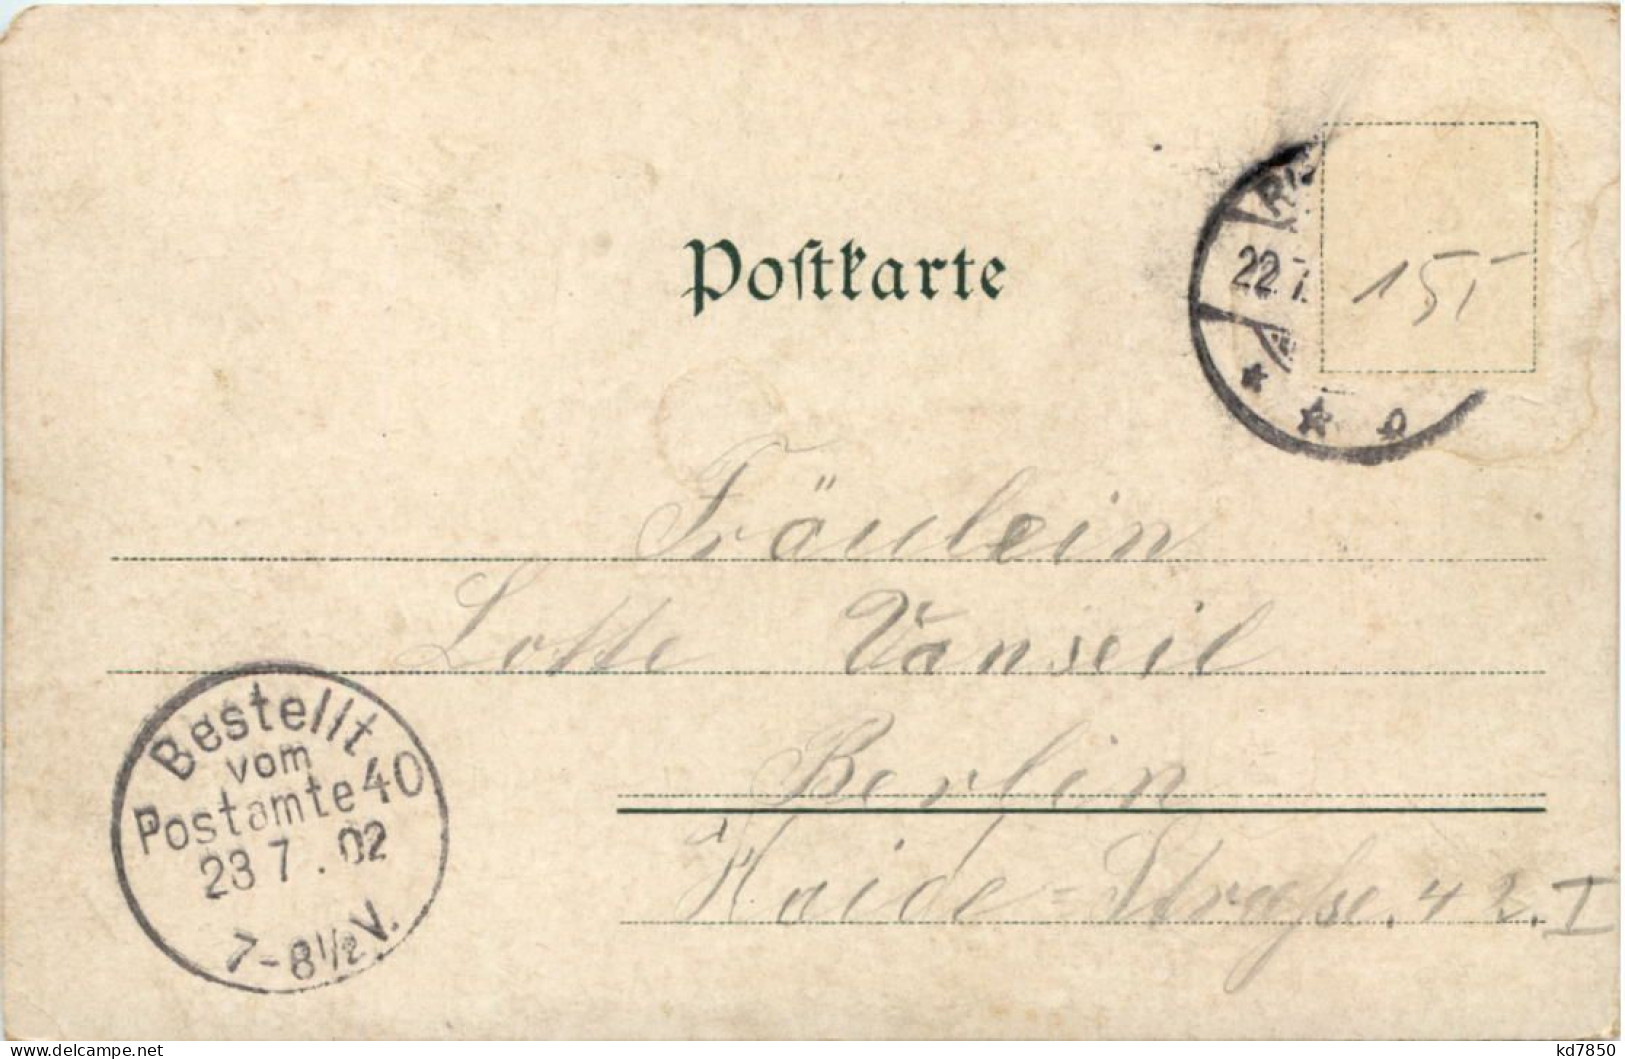 Postkarte
22.7.
155
Fräulein
Lotte Vanseil
Berlin
Haide=Straße. 42. I
Bestellt
vom
Postamte 40
23 7. 02
7-8½ V.
www.delcampe.net
kd7850